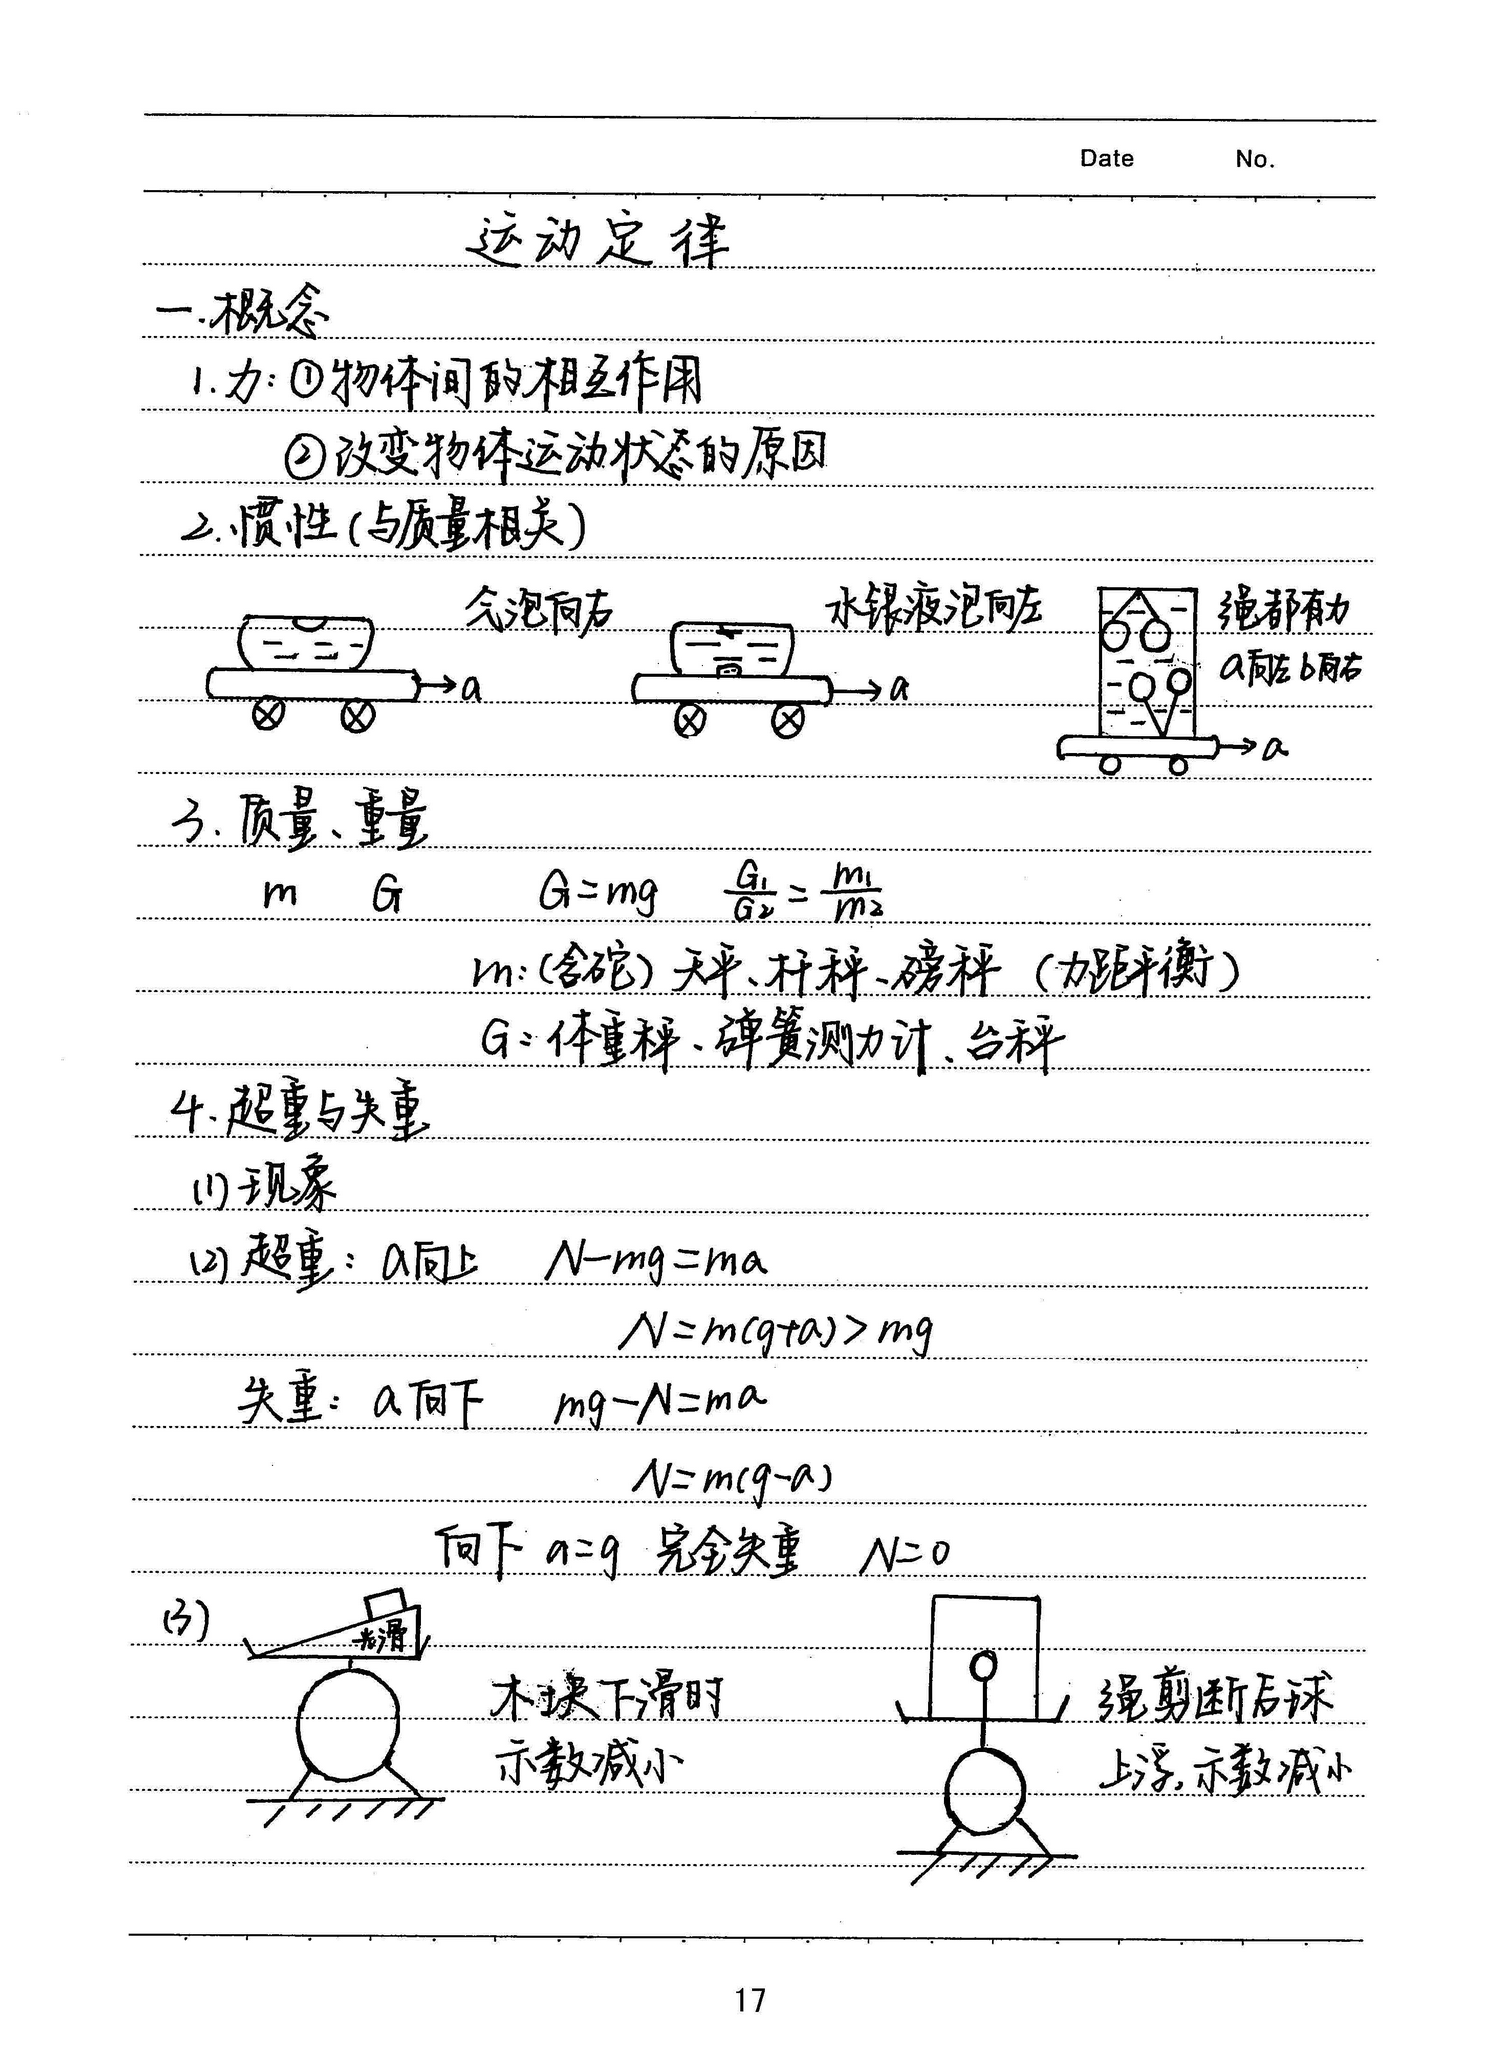 Date No.
运动定律
一.概念
1.力:①物体间的相互作用
②改变物体运动状态的原因
2.惯性(与质量相关)
气泡向右
水银液泡向左
绳都有力
a向左b向右
a
a
a
3.质量、重量
m G G=mg G₁/G₂=m₁/m₂
m:(含砣)天平、杆秤、磅秤(力距平衡)
G:体重秤、弹簧测力计、台秤
4.超重与失重
(1)现象
(2)超重:a向上 N-mg=ma
N=m(g+a)>mg
失重:a向下 mg-N=ma
N=m(g-a)
向下 a=g 完全失重 N=0
(3)
光滑
木块下滑时
示数减小
绳剪断后球
上浮,示数减小
17